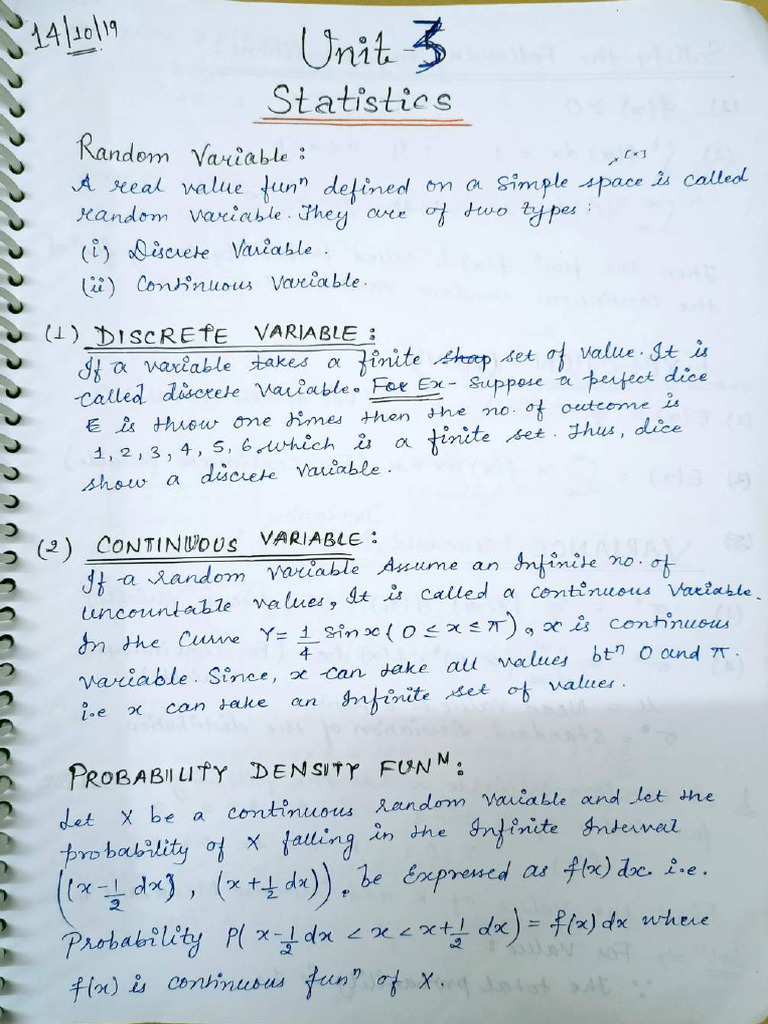 14/10/19
Unit-3
Statistics
Random Variable:
, [x]
A real value funⁿ defined on a Simple space is called
random variable. They are of two types:
(i) Discrete Variable.
(ii) Continuous Variable.
(1) DISCRETE VARIABLE:
If a variable takes a finite shap set of value. It is
called discrete Variable. For Ex- Suppose a perfect dice
E is throw one times then the no. of outcome is
1, 2, 3, 4, 5, 6 which is a finite set. Thus, dice
show a discrete variable.
(2) CONTINUOUS VARIABLE:
If a random variable Assume an Infinite no. of
uncountable values, It is called a continuous Variable.
In the Curve Y= 1/4 Sinx (0 ≤ x ≤ π), x is continuous
variable. Since, x can take all values btⁿ 0 and π.
i.e x can take an Infinite set of values.
PROBABIILITY DENSITY FUNᴺ:
Let X be a continuous random variable and let the
probability of X falling in the Infinite Interval
((x-1/2 dx), (x+1/2 dx)). be Expressed as f(x) dx. i.e.
Probability P( x-1/2 dx < x < x+1/2 dx) = f(x) dx where
f(x) is continuous funⁿ of X.